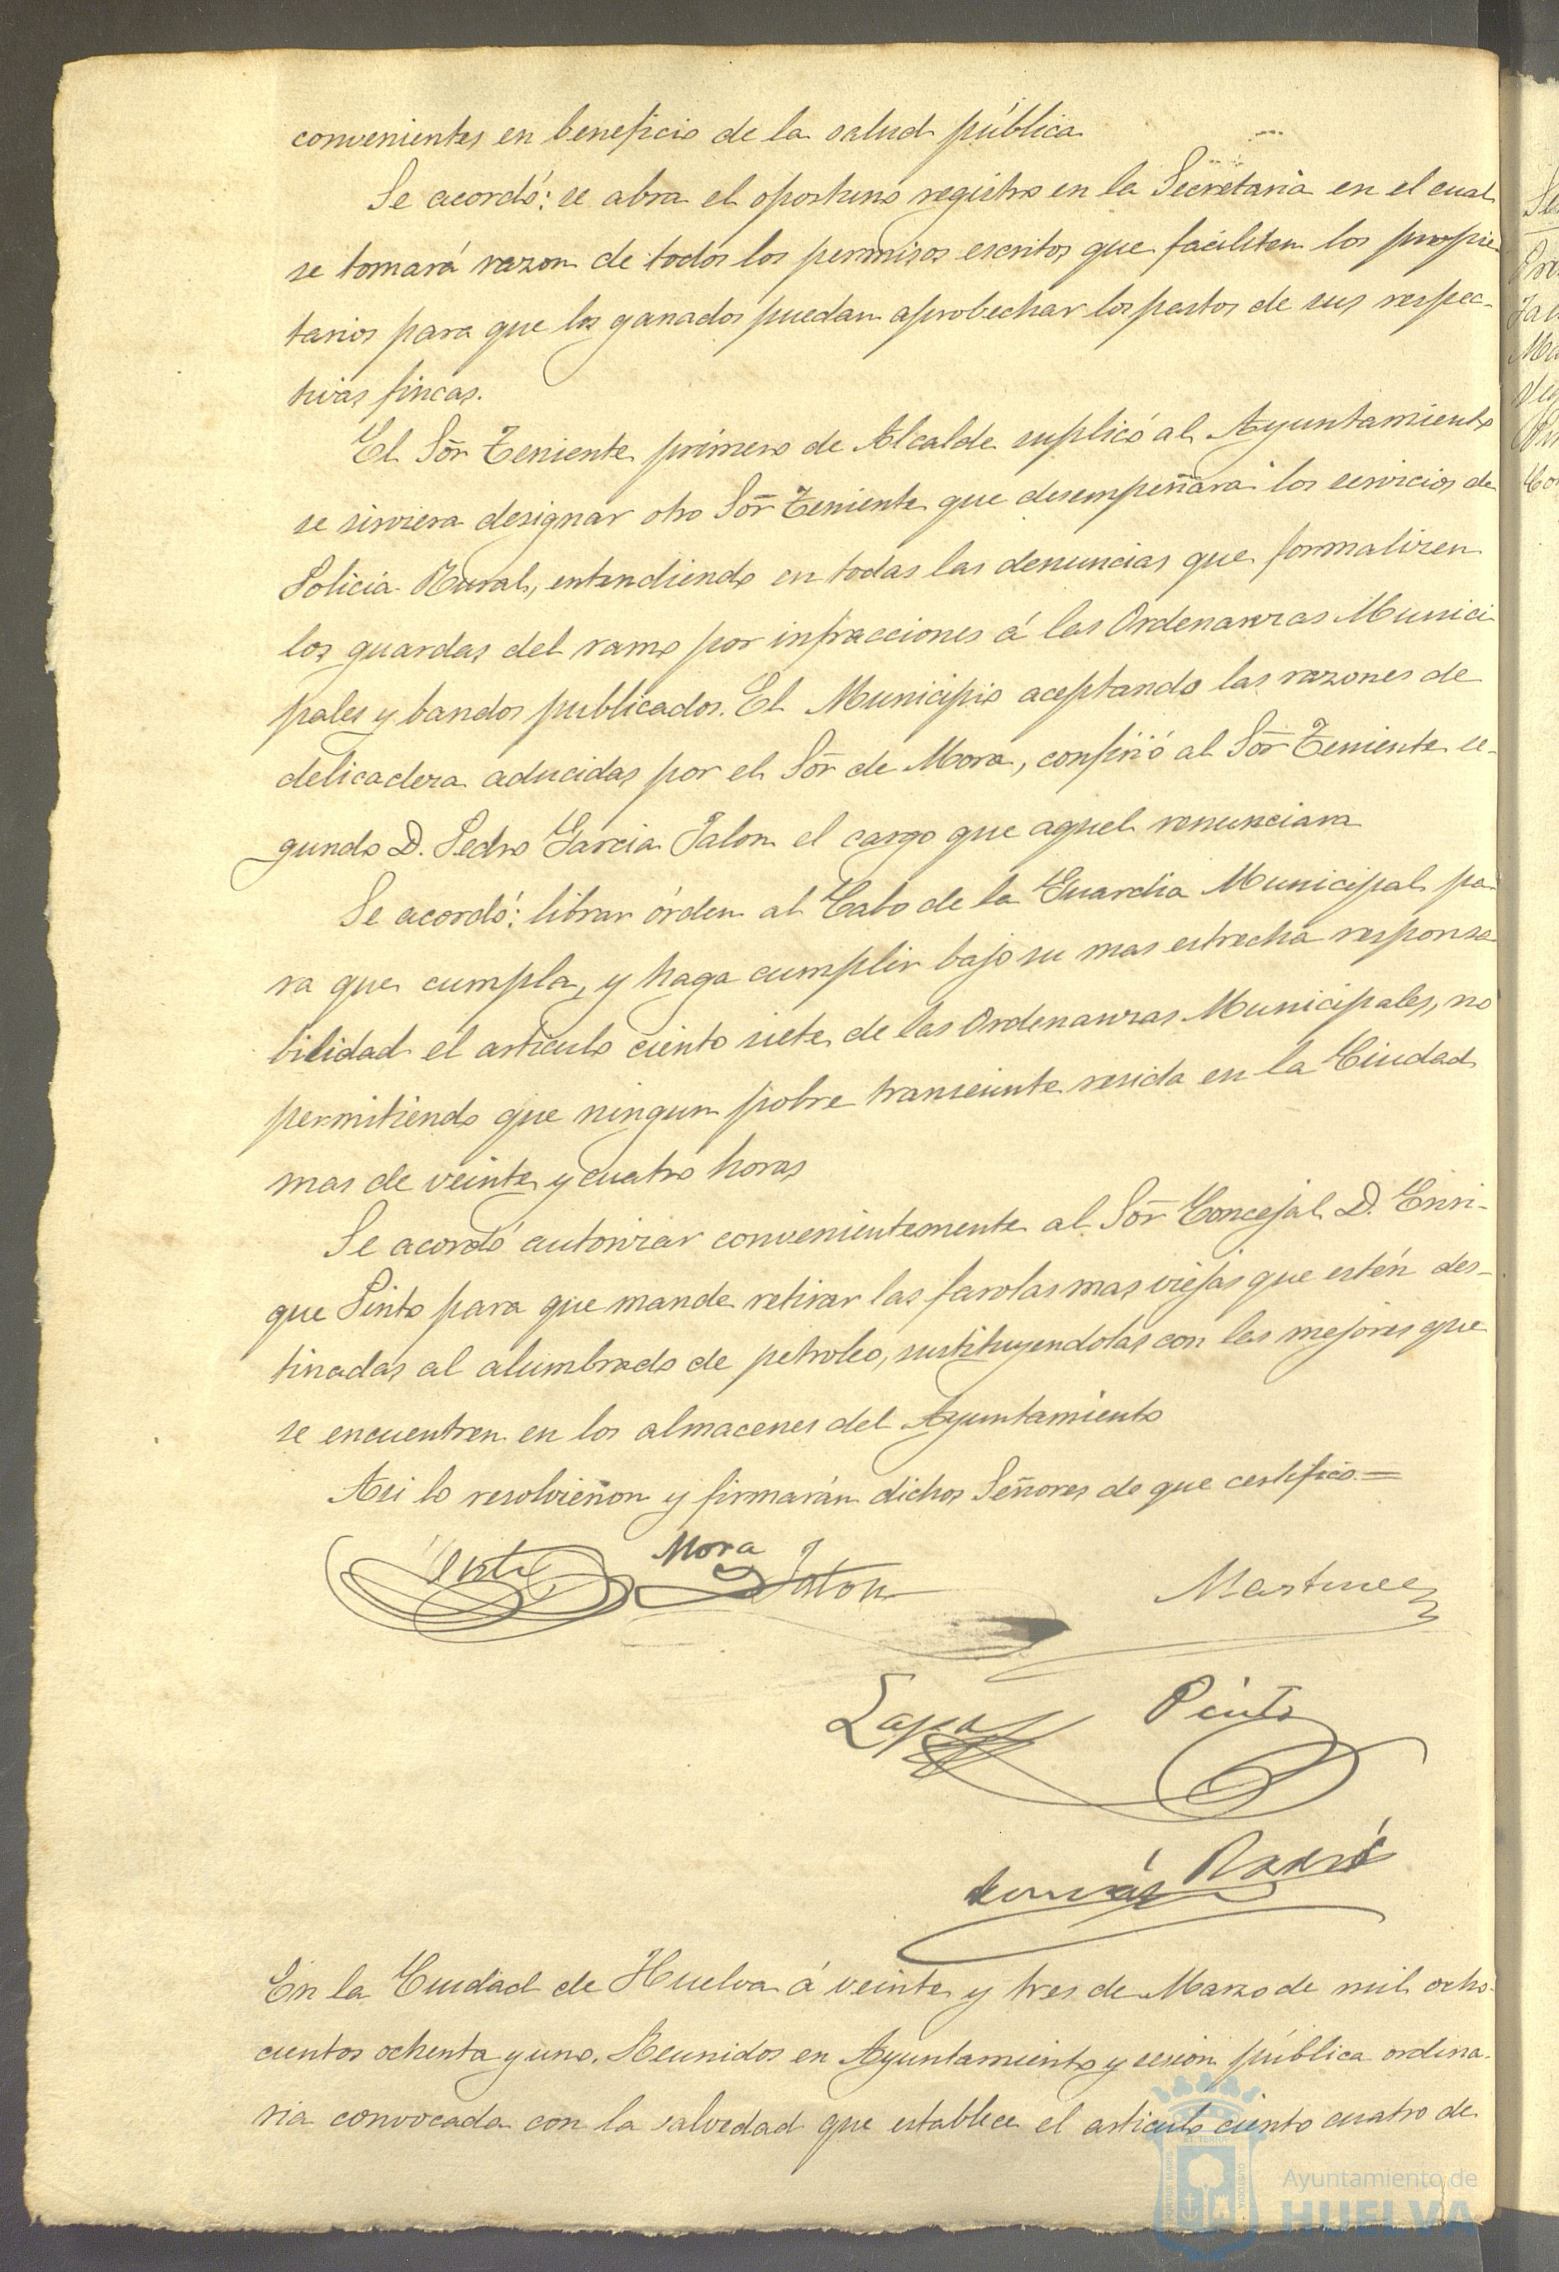 convenientes en beneficio de la salud pública
Se acordó: se abra el oportuno registro en la Secretaria en el cual
se tomará razon de todos los permisos escritos que faciliten los propie
tarios para que los ganados puedan aprobechar los pastos de sus respec-
tivas fincas.
El Sōr Teniente primero de Alcalde suplicó al Ayuntamiento
se sirviera designar otro Sōr Teniente que desempeñara los servicios de
Policia Rural, entendiendo en todas las denuncias que formalizen
los guardas del ramo por infracciones á las Ordenanzas Munici
pales y bandos publicados. El Municipio aceptando las razones de
delicadeza aducidas por el Sōr de Mora, confirió al Sōr Teniente se-
gundo D. Pedro Garcia Jalon el cargo que aquel renunciara
Se acordó: librar órden al Cabo de la Guardia Municipal pa-
ra que cumpla, y haga cumplir bajo su mas estrecha responsa
bilidad el articulo ciento siete de las Ordenanzas Municipales, no
permitiendo que ningun pobre transeunte resida en la Ciudad
mas de veinte y cuatro horas
Se acordó autorizar convenientemente al Sōr Concejal D. Enri-
que Pinto para que mande retirar las farolas mas viejas que estén des-
tinadas al alumbrado de petroleo, sustituyendolas con las mejores que
se encuentren en los almacenes del Ayuntamiento
Asi lo resolvieron y firmarán dichos Señores de que certifico. =
Mora Jalon
Martinez
Pinto
En la Ciudad de Huelva á veinte y tres de Marzo de mil ocho-
cientos ochenta y uno. Reunidos en Ayuntamiento y sesion pública ordina-
ria convocada con la salvedad que establece el articulo ciento cuatro de
Ayuntamiento de
HUELVA